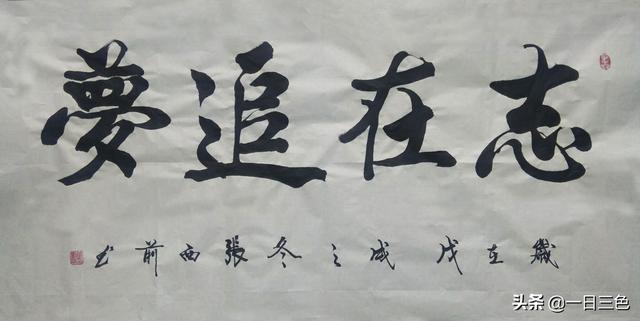 志在追夢
歲在戊戌之冬張西前书
头条 @一日三色